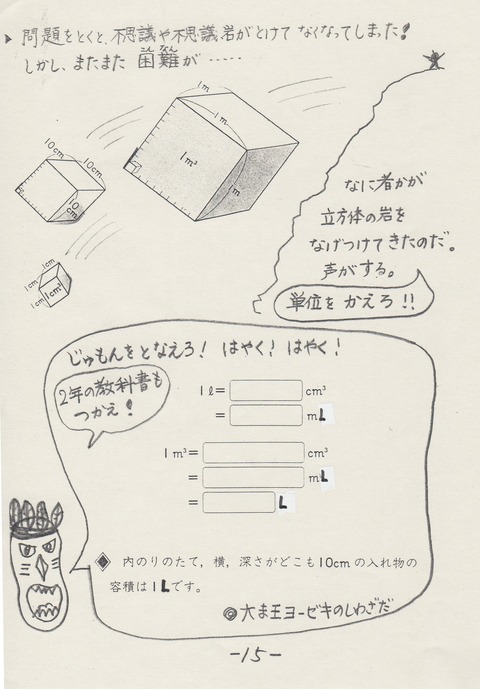 ▶ 問題をとくと、不思議や不思議岩がとけて なくなってしまった!
しかし、またまた 困難が ‥‥‥
1m
1m
1m³
m
10cm
10cm
10cm
1cm
1cm
1cm
1cm³
なに者かが
立方体の岩を
なげつけてきたのだ。
声がする。
単位を かえろ!!
じゅもんをとなえろ! はやく! はやく!
2年の教科書も
つかえ!
1ℓ= cm³
= mL
1m³= cm³
= mL
= L
◈ 内のりのたて,横,深さがどこも10cmの入れ物の
容積は1Lです。
◎大ま王ヨーゼキのしわざだ
-15-